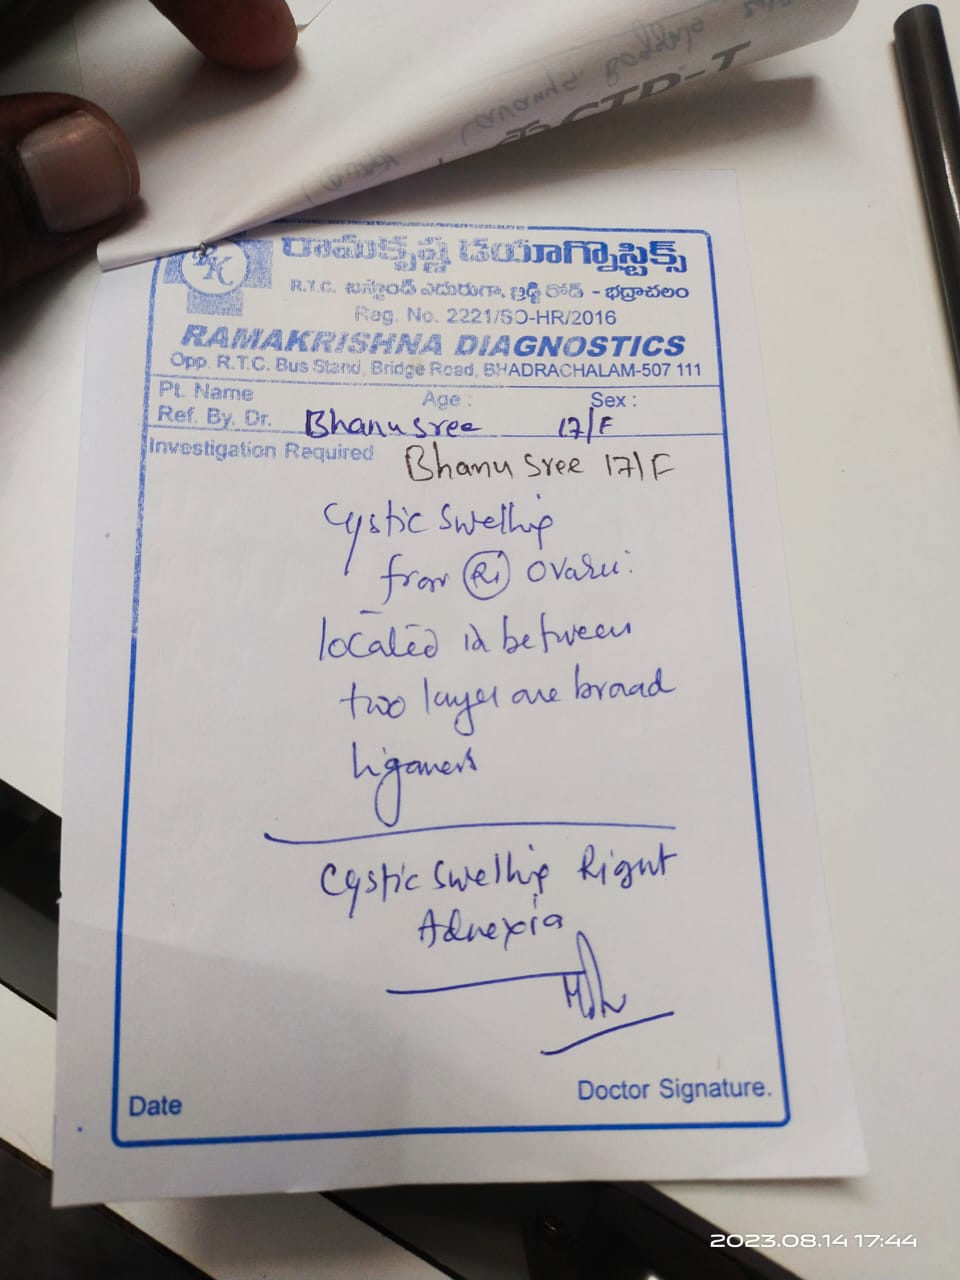 రామకృష్ణ డయాగ్నొస్టిక్స్
R.T.C. బస్టాండ్ ఎదురుగా, బ్రిడ్జి రోడ్ - భద్రాచలం
Reg. No. 2221/SO-HR/2016
RAMAKRISHNA DIAGNOSTICS
Opp. R.T.C. Bus Stand, Bridge Road, BHADRACHALAM-507 111
Pt. Name Age : Sex :
Ref. By. Dr. Bhanusree 17/F
Investigation Required
Bhanu Sree 17/F
Cystic Swelling
from Rt Ovary.
located in between
two layer are broad
ligament
Cystic Swelling Right
Adnexia
Doctor Signature.
Date
2023.08.14 17:44